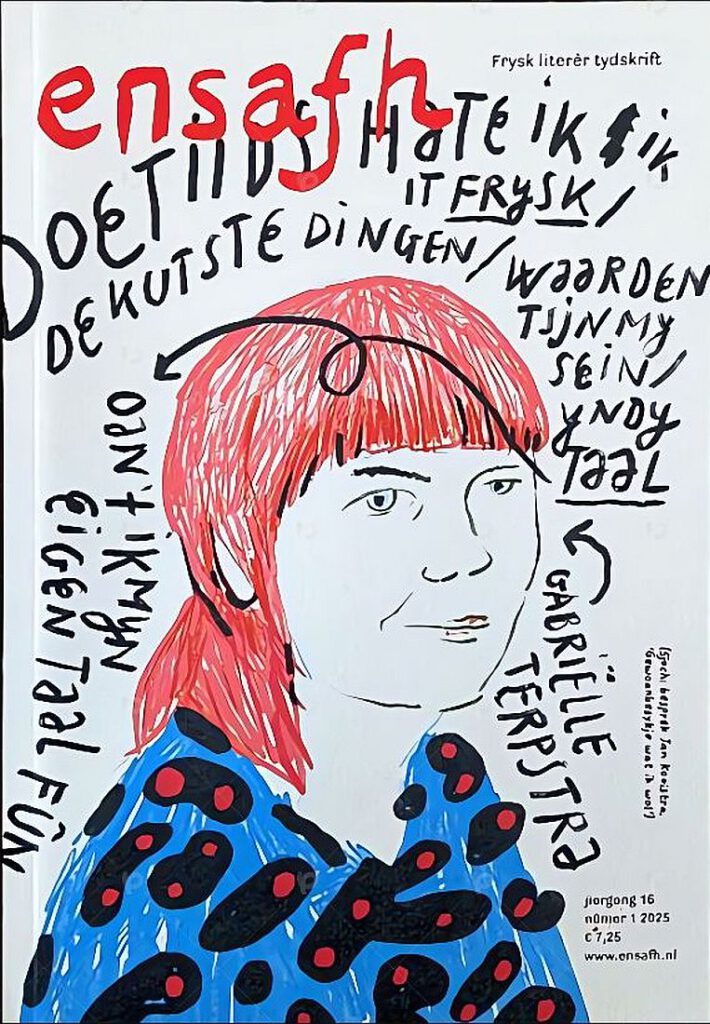 ensafh
Frysk literêr tydskrift
DOETIIDS HATE IK
IT FRYSK /
IK
DE KUTSTE DINGEN /
WAARDEN
TSJN MY
SEIN /
YNDY
TAAL
OAN'T IK MYN
EIGEN TAAL FÛN
GABRIËLLE
TERPSTRA
(sjoch: besprek Jan Kooistra,
'Gewoanbesykje wat ik wol')
jiorgong 16
nûmer 1 2025
€ 7,25
www.ensafh.nl